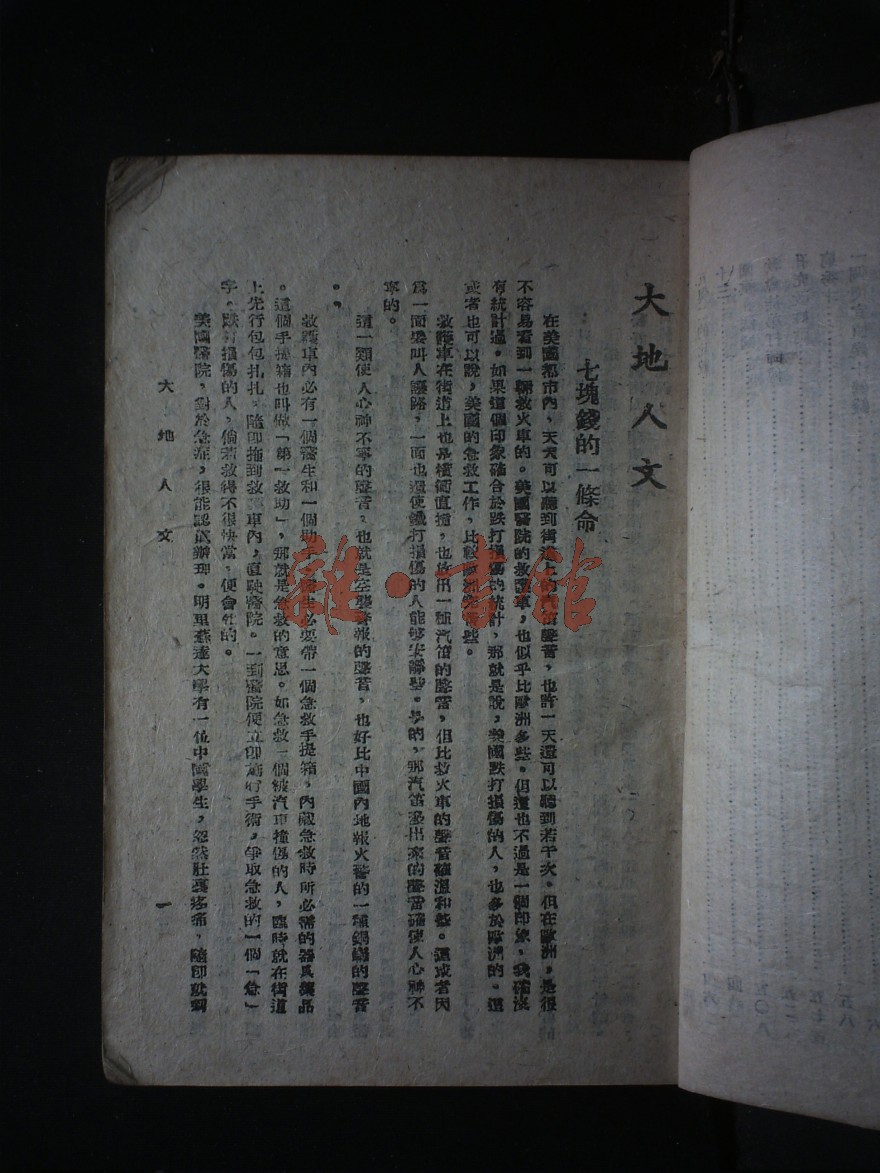 大地人文
七塊錢的一條命
在美國都市內，天天可以聽到街道上的聲音，也許一天還可以聽到若干次。但在歐洲，是很
不容易看到一輛救火車的。美國醫院的救護車，也似乎比歐洲多些。但這也不過是一個印象，我確沒
有統計過。如果這個印象確合於跌打損傷的統計，那就是說，美國跌打損傷的人，也多於歐洲的。這
或者也可以說，美國的急救工作，比較歐洲些。
救護車在街道上也是橫衝直撞，也放出一種汽笛的聲音，但比救火車的聲音確溫和些。這或者因
爲一面要叫人讓路，一面也還使跌打損傷的人能够安靜些。那汽笛發出來的聲音確使人心神不
寧的。
這一類使人心神不寧的聲音，也就是空襲警報的聲音，也好比中國內地報火警的一種鍋的聲音
。
救護車內必有一個醫生和一個助手，醫生必要帶一個急救手提箱，內藏急救時所必需的器具藥品
。這個手提箱也叫做「第一救助」，那就是急救的意思。如急救一個被汽車撞傷的人，臨時就在街道
上先行包包扎扎，隨即拖到救護車內，直駛醫院。一到醫院便立即施行手術，爭取急救的一個「急」
字。跌打損傷的人，倘若救得不很快當，便會的。
美國醫院，對於急症，很能認真辦理。明里蘇達大學有一位中國學生，忽然肚裏疼痛，隨卽就到
大地人文
一
雜·書館